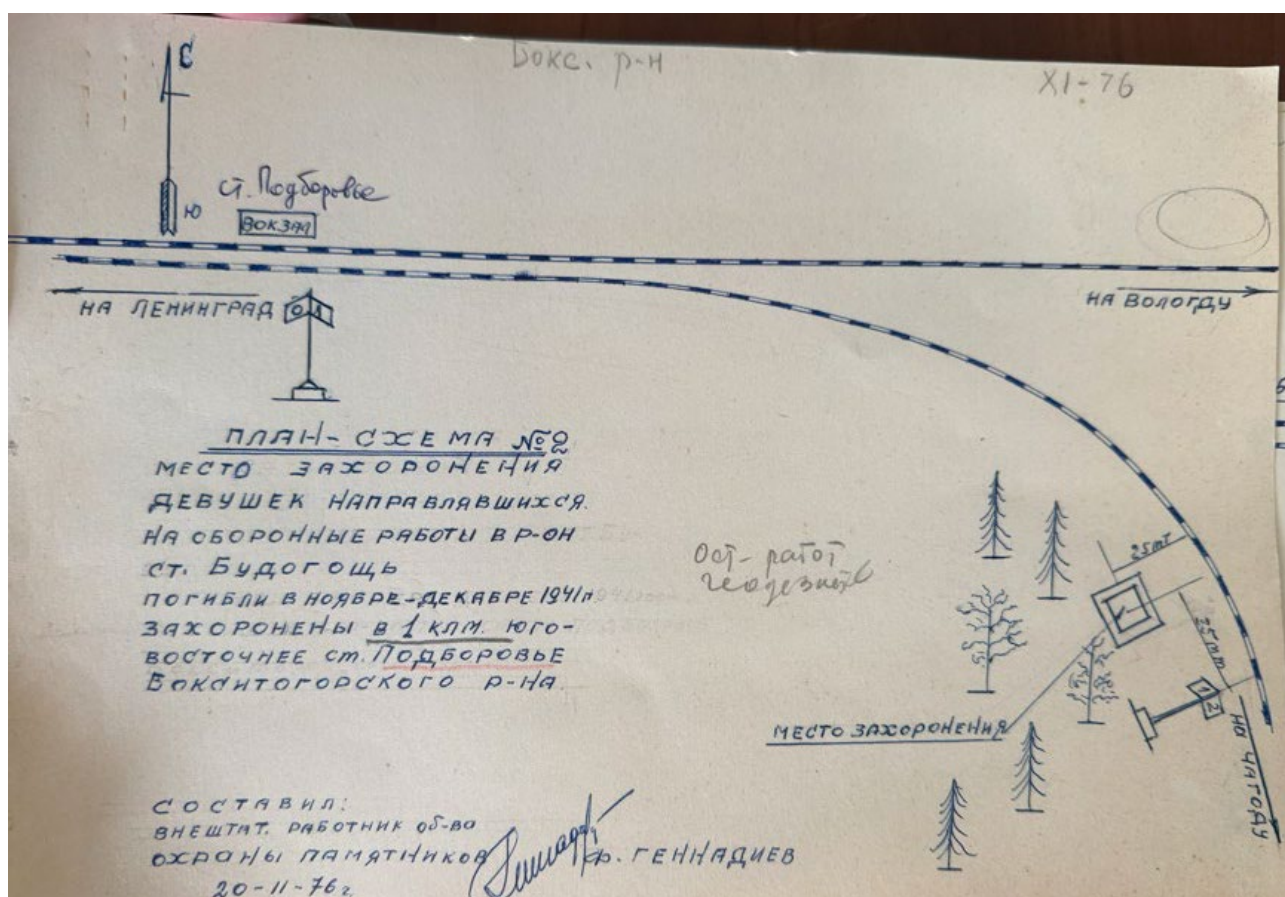 Бокс. р-н
XI-76
С
Ю
ст. Подборовье
ВОКЗАЛ
НА ЛЕНИНГРАД
0 1
НА ВОЛОГДУ
ПЛАН-СХЕМА №2
МЕСТО ЗАХОРОНЕНИЯ
ДЕВУШЕК НАПРАВЛЯВШИХСЯ
НА ОБОРОННЫЕ РАБОТЫ В Р-ОН
СТ. БУДОГОЩЬ
ПОГИБЛИ В НОЯБРЕ-ДЕКАБРЕ 1941г.
ЗАХОРОНЕНЫ В 1 КЛМ. ЮГО-
ВОСТОЧНЕЕ СТ. ПОДБОРОВЬЕ
БОКСИТОГОРСКОГО Р-НА
25 мт
25 мт
1 2
НА ЧАГОДУ
МЕСТО ЗАХОРОНЕНИЯ
СОСТАВИЛ:
ВНЕШТАТ. РАБОТНИК ОБ-ВА
ОХРАНЫ ПАМЯТНИКОВ
Ф. ГЕННАДИЕВ
20-11-76г